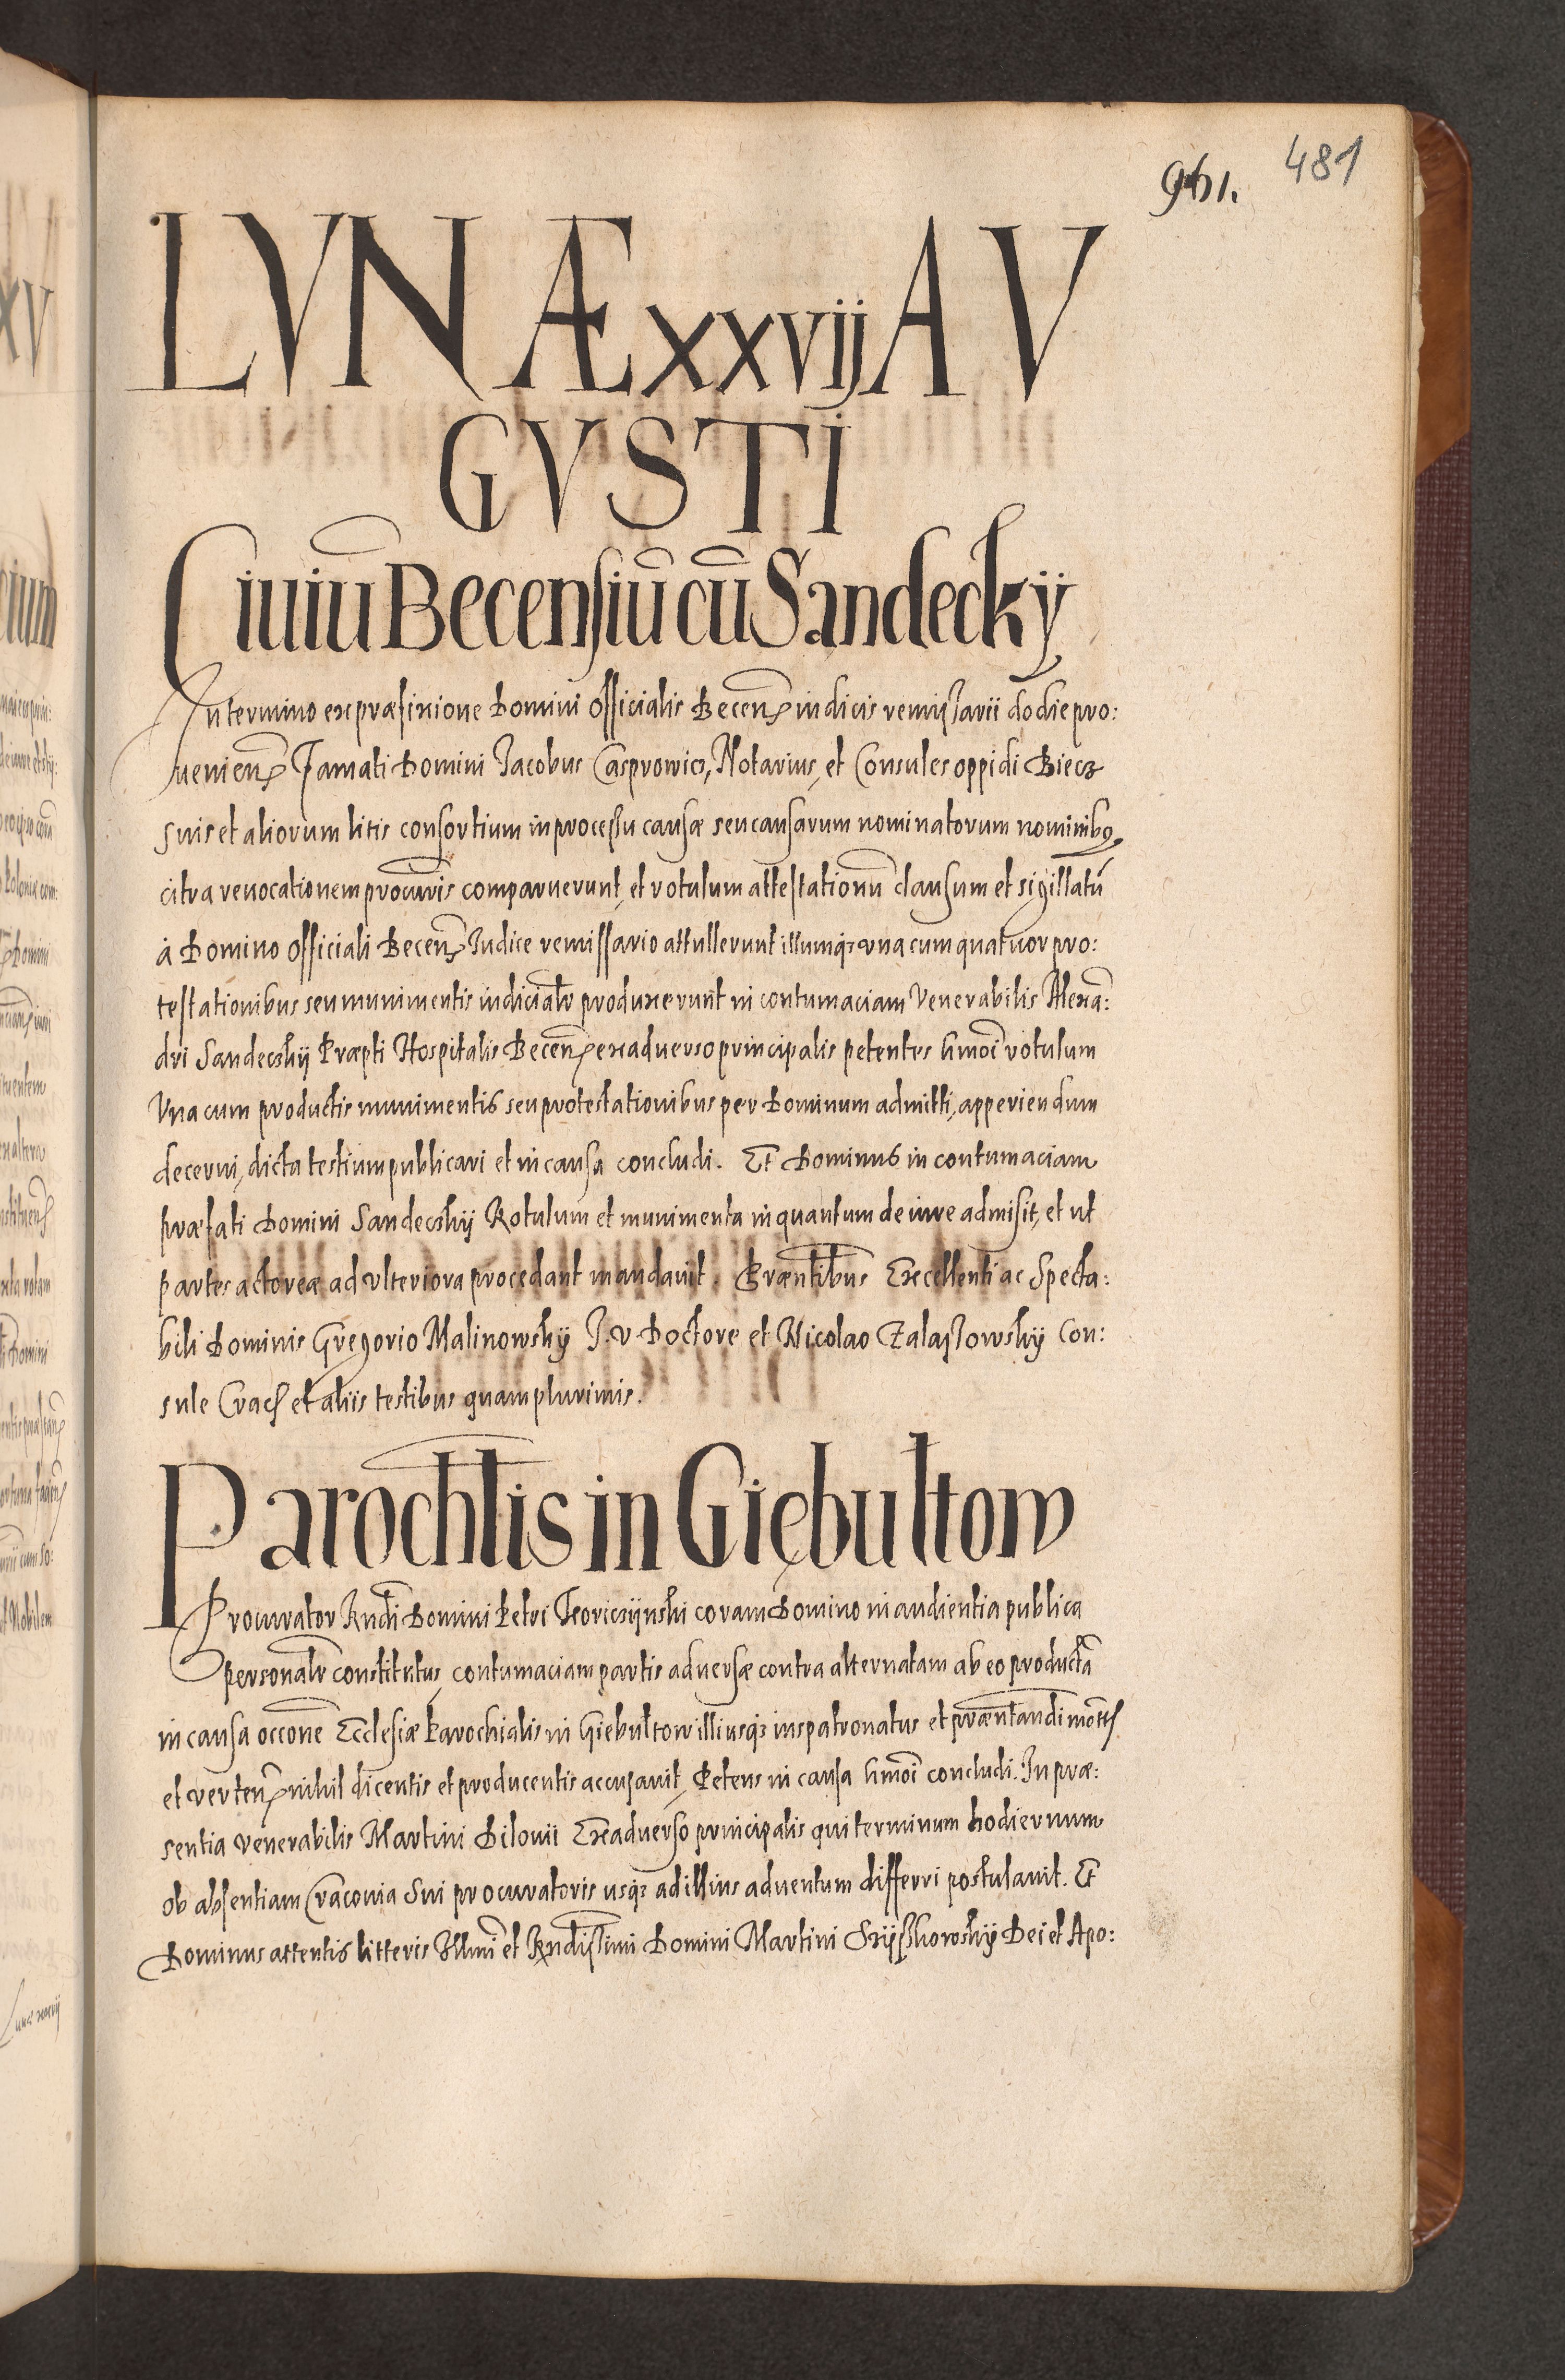 961. 481
LVNÆ xxvij AV
GVSTI
Ciuiū Becensiū cū Sandeckÿ
In termino ex præfixione Domini Officialis Becen̄ iudicis remissarii hodie pro:
ueniens̄ Famati Domini Jacobus Casprowicz, Notarius, et Consules oppidi Biecz
suis et aliorum litis consortium in processu causæ seu causarum nominatorum nominibꝫ
citra reuocationem procuris̄ comparuerunt, et rotulum attestationū clausum et sigillatū
à Domino Officiali Becen̄ Iudice remissario attullerunt illumqꝫ vna cum quatuor pro:
testationibus seu munimentis iudicialr̄ produxerunt in contumaciam Venerabilis Alexā:
dri Sandeczkÿ Præpti Hospitalis Becen̄ ex aduerso principalis petentes hmōi rotulum
Vna cum productis munimentis seu protestationibus per Dominum admitti, apperiendum
decerni, dicta testium publicari et in causa concludi. Et Dominus in contumaciam
præfati Domini Sandeczkÿ Rotulum et munimenta in quantum de iure admisit, et ut
partes actoreæ ad vlteriora procedant mandauit. Præntibus̄ Excellenti ac Specta:
bili Dominis Gregorio Malinowskÿ J. V Doctore et Nicolao Zalaszowskÿ Con:
sule Crac̄ et aliis testibus quamplurimis.
Parochlis̄ in Giębułtow
Procurator Rndi̅ Domini Petri Skoriczÿnski coram Domino in audientia publica
personalr̄ constitutus, contumaciam partis aduersæ contra alternatam ab eo productā
in causa occōne Ecclesiæ Parochialis in Giebultow illiusqꝫ iuspatronatus et præntandi̅ mot̄
et verten̄ nihil dicentis et producentis accusauit, Petens in causa hmōi concludi. In præ:
sentia venerabilis Martini Bilouii Exaduerso principalis qui terminum hodiernum
ob absentiam Cracouia sui procuratoris usqꝫ ad illius aduentum differri postulauit. Et
Dominus attentis litteris Illmi̅ et Rndissimi̅ Domini Martini Szÿszkowskÿ Dei et Apo: